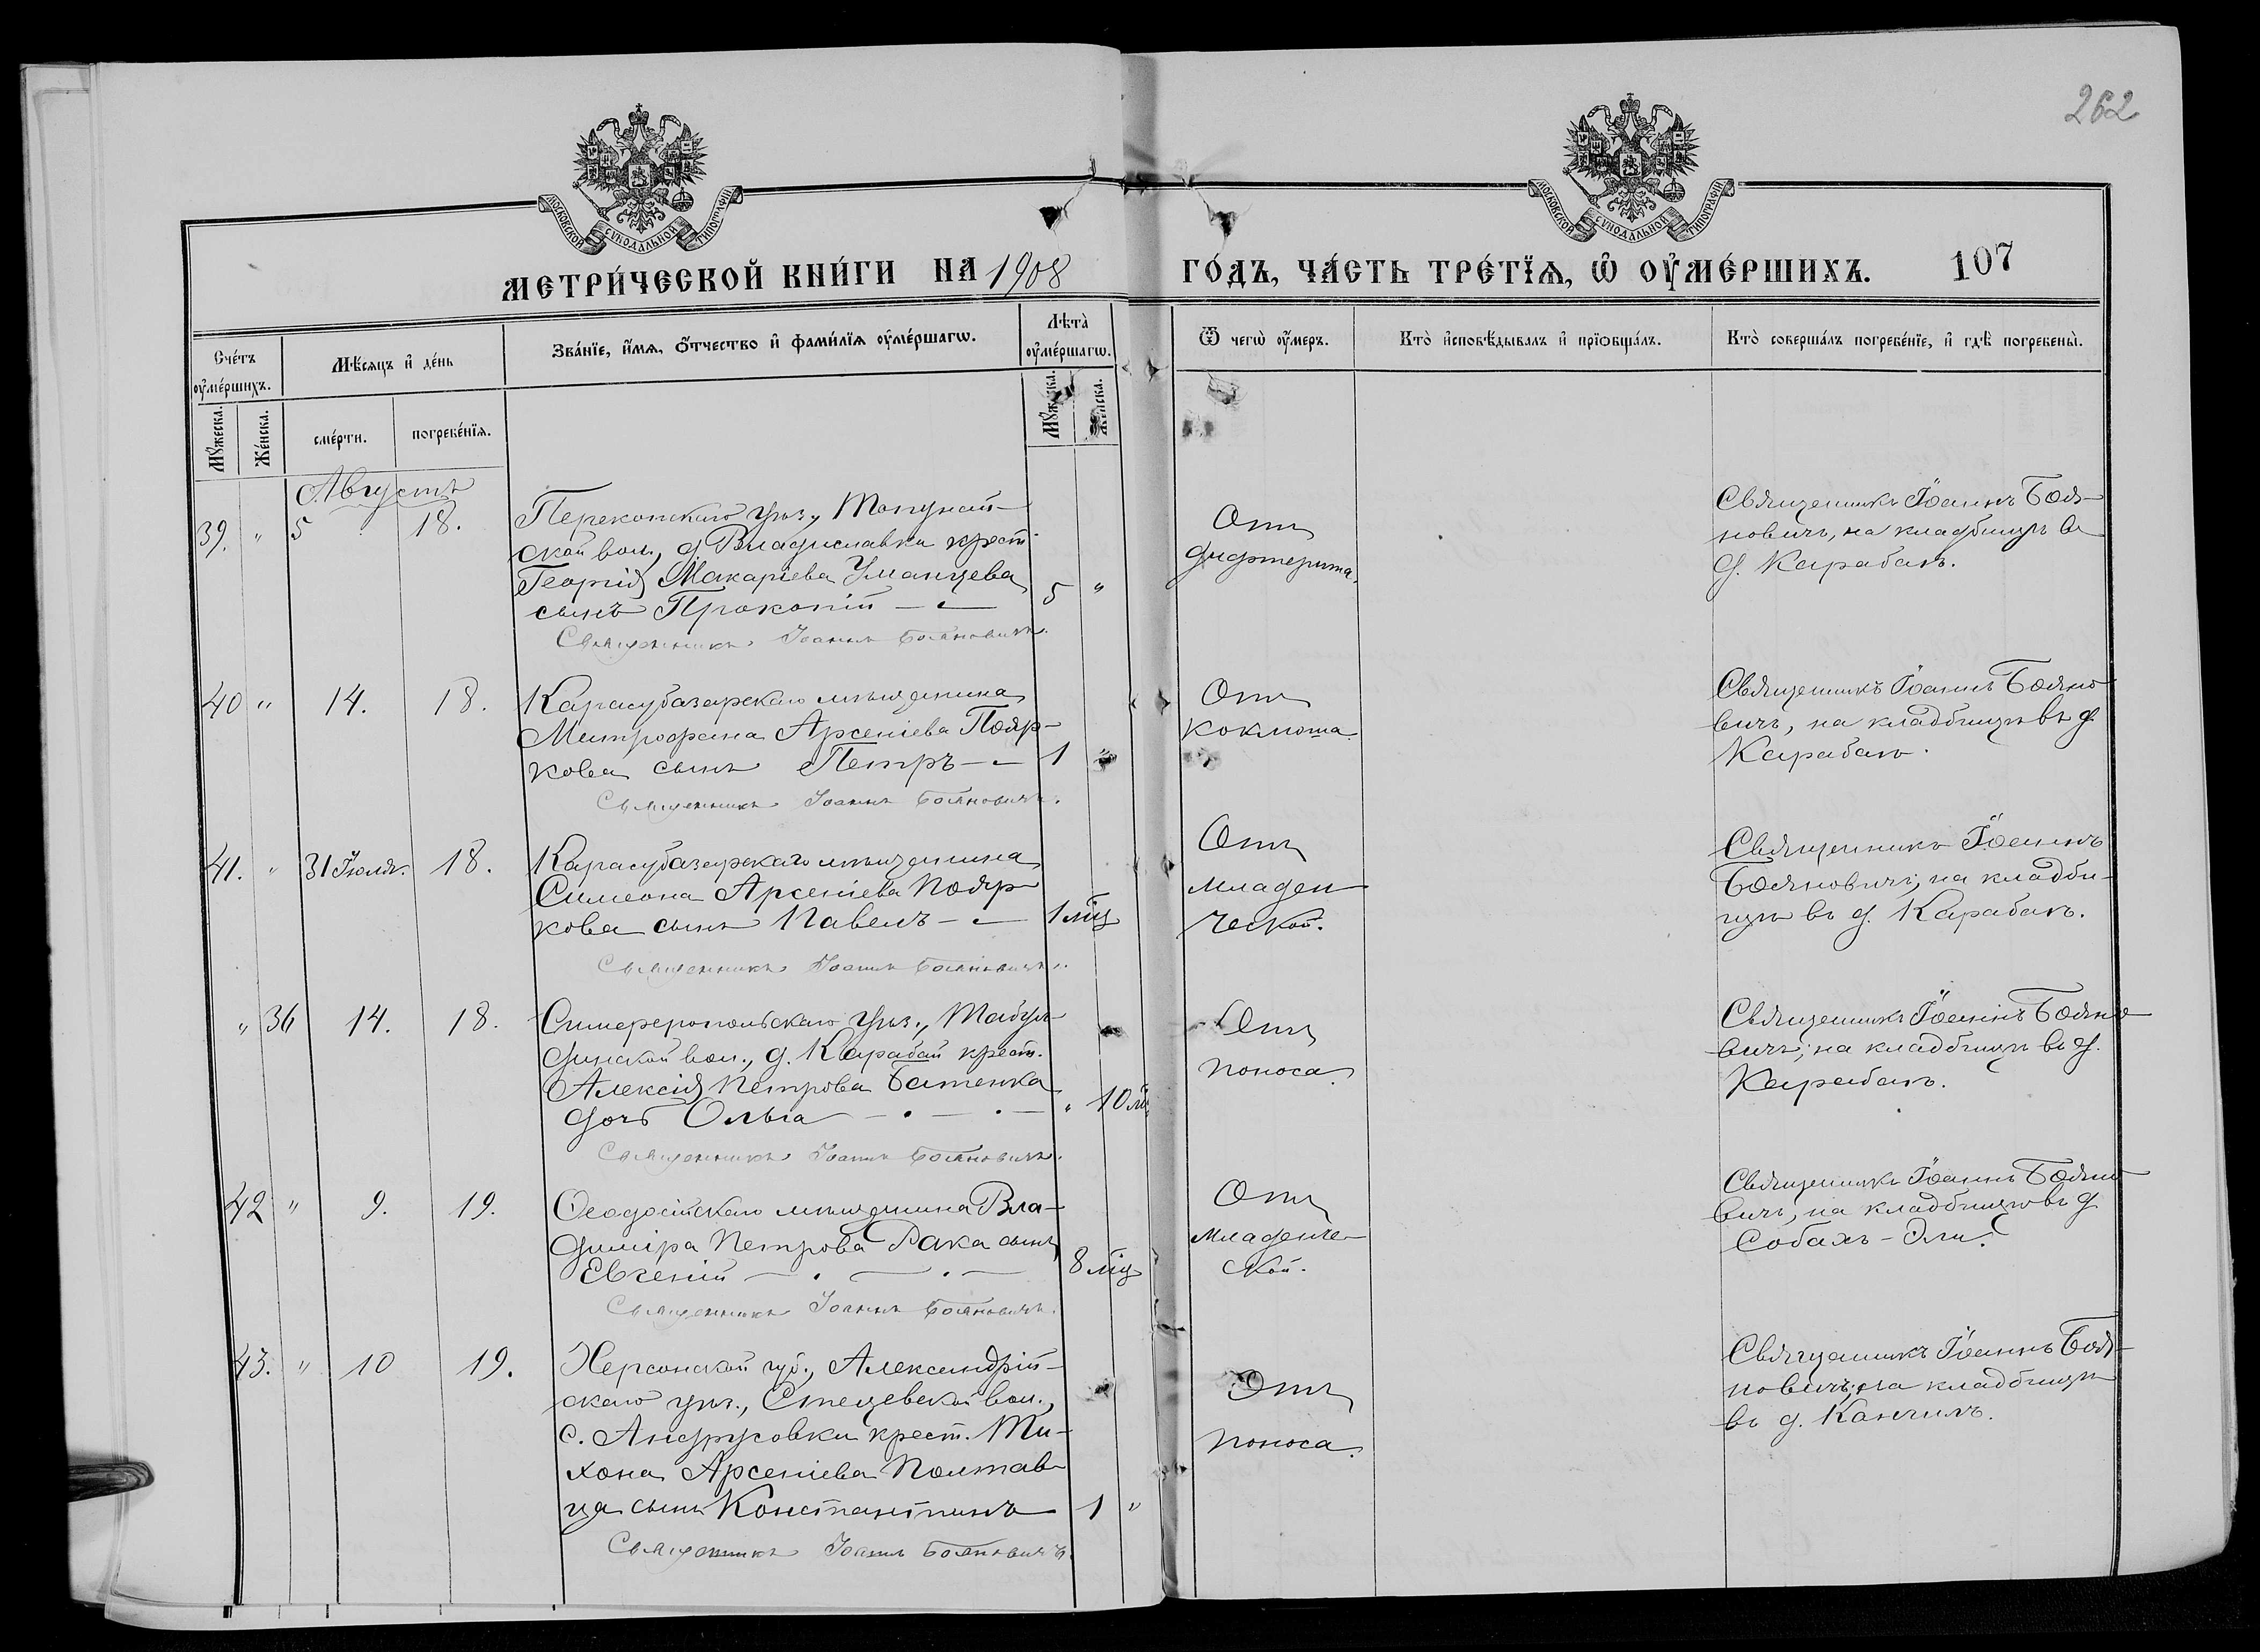 262
МОСКОВСКОЙ СѴНОДАЛЬНОЙ ТИПОГРАФІИ
МОСКОВСКОЙ СѴНОДАЛЬНОЙ ТИПОГРАФІИ
МЕТРИ́ЧЕСКОЙ КНИ́ГИ НА 1908 ГО́ДЪ, ЧА́СТЬ ТРЕ́ТЇѦ, Ѡ҆ ОУ҆МЕ́РШИХЪ. 107
Сче́тъ оу҆ме́ршихъ.
Мѣ́сяцъ и҆ де́нь
Зва́нїе, и҆́мѧ, ѻ҆́тчество и҆ фами́лїѧ оу҆ме́ршагѡ.
Лѣта̀ оу҆ме́ршагѡ.
Ѿ чегѡ̀ оу҆́меръ.
Кто̀ и҆сповѣ́дывалъ и҆ прїѡбща́лъ.
Кто̀ соверша́лъ погребе́нїе, и҆ гдѣ̀ погребены̀.
Мꙋ́жеска.
Же́нска.
сме́рти.
погребе́нїѧ.
Мꙋ́жеска.
Же́нска.
Августъ
39. " 5 18.
Перекопскаго уѣз.,
ской вол., д. Владиславки крест.
Георгія Макаріева Уманцева
сынъ Прокопій — 5 "
Священникъ Іоаннъ Бояновичъ.
Отъ
дифтерита.
Священникъ Іоаннъ Боя-
новичъ, на кладбищѣ въ
д. Карабаѣ.
40 " 14. 18.
Карасубазарскаго мѣщанина
Митрофана Арсеніева Пояр-
кова сынъ Петръ — 1 "
Священникъ Іоаннъ Бояновичъ.
Отъ
коклюша.
Священникъ Іоаннъ Бояно-
вичъ, на кладбищѣ въ д.
Карабаѣ.
41. " 31 Іюля. 18.
Карасубазарскаго мѣщанина
Симеона Арсеніева Пояр-
кова сынъ Павелъ — 1 мѣц
Священникъ Іоаннъ Бояновичъ.
Отъ
младен-
ческой.
Священникъ Іоаннъ
Бояновичъ, на кладби-
щѣ въ д. Карабаѣ.
" 36 14. 18.
Симферопольскаго уѣз., Табул-
динской вол., д. Карабай крест.
Алексія Петрова Батенка
дочь Ольга — " 10 мѣ
Священникъ Іоаннъ Бояновичъ.
Отъ
поноса.
Священникъ Іоаннъ Бояно-
вичъ, на кладбищѣ въ д.
Карабаѣ.
42 " 9. 19.
Ѳеодосійскаго мѣщанина Вла-
диміра Петрова Рака сынъ
Евгеній — 8 мѣц
Священникъ Іоаннъ Бояновичъ.
Отъ
младенче-
ской.
Священникъ Іоаннъ Бояно-
вичъ, на кладбищѣ въ д.
Собахъ-Эли.
43. " 10 19.
Херсонской губ., Александрій-
скаго уѣз., Стецевской вол.,
с. Андрусовки крест. Ти-
хона Арсеніева Полтав-
ца сынъ Константинъ 1 "
Священникъ Іоаннъ Бояновичъ.
Отъ
поноса.
Священникъ Іоаннъ Боя-
новичъ, на кладбищѣ
въ д. Канчилъ.